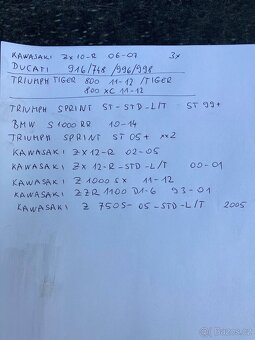 KAWASAKI ZX10-R 06-07 3x
DUCATI 916/748/996/998
TRIUMPH TIGER 800 11-12 /TIGER
800 XC 11-12
TRIUMPH SPRINT ST-STD-L/T ST 99+
BMW S1000RR 10-14
TRIUMPH SPRINT ST 05+ xx2
KAWASAKI ZX 12-R 02-05
KAWASAKI ZX 12-R-STD-L/T 00-01
KAWASAKI Z1000SX 11-12
KAWASAKI ZZR 1100 D1-6 93-01
KAWASAKI Z 750S-05-STD-L/T 2005
Sbazos.cz